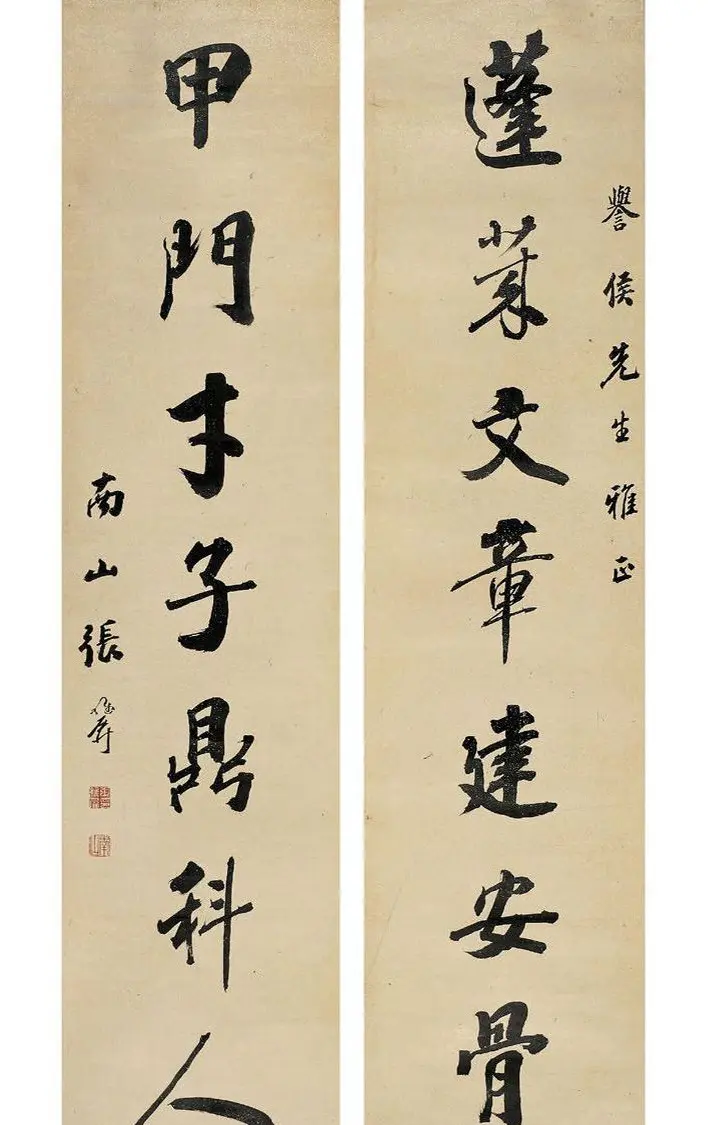 譽侯先生雅正
蓬萊文章建安骨
甲門才子鼎科人
南山張維屏
南山